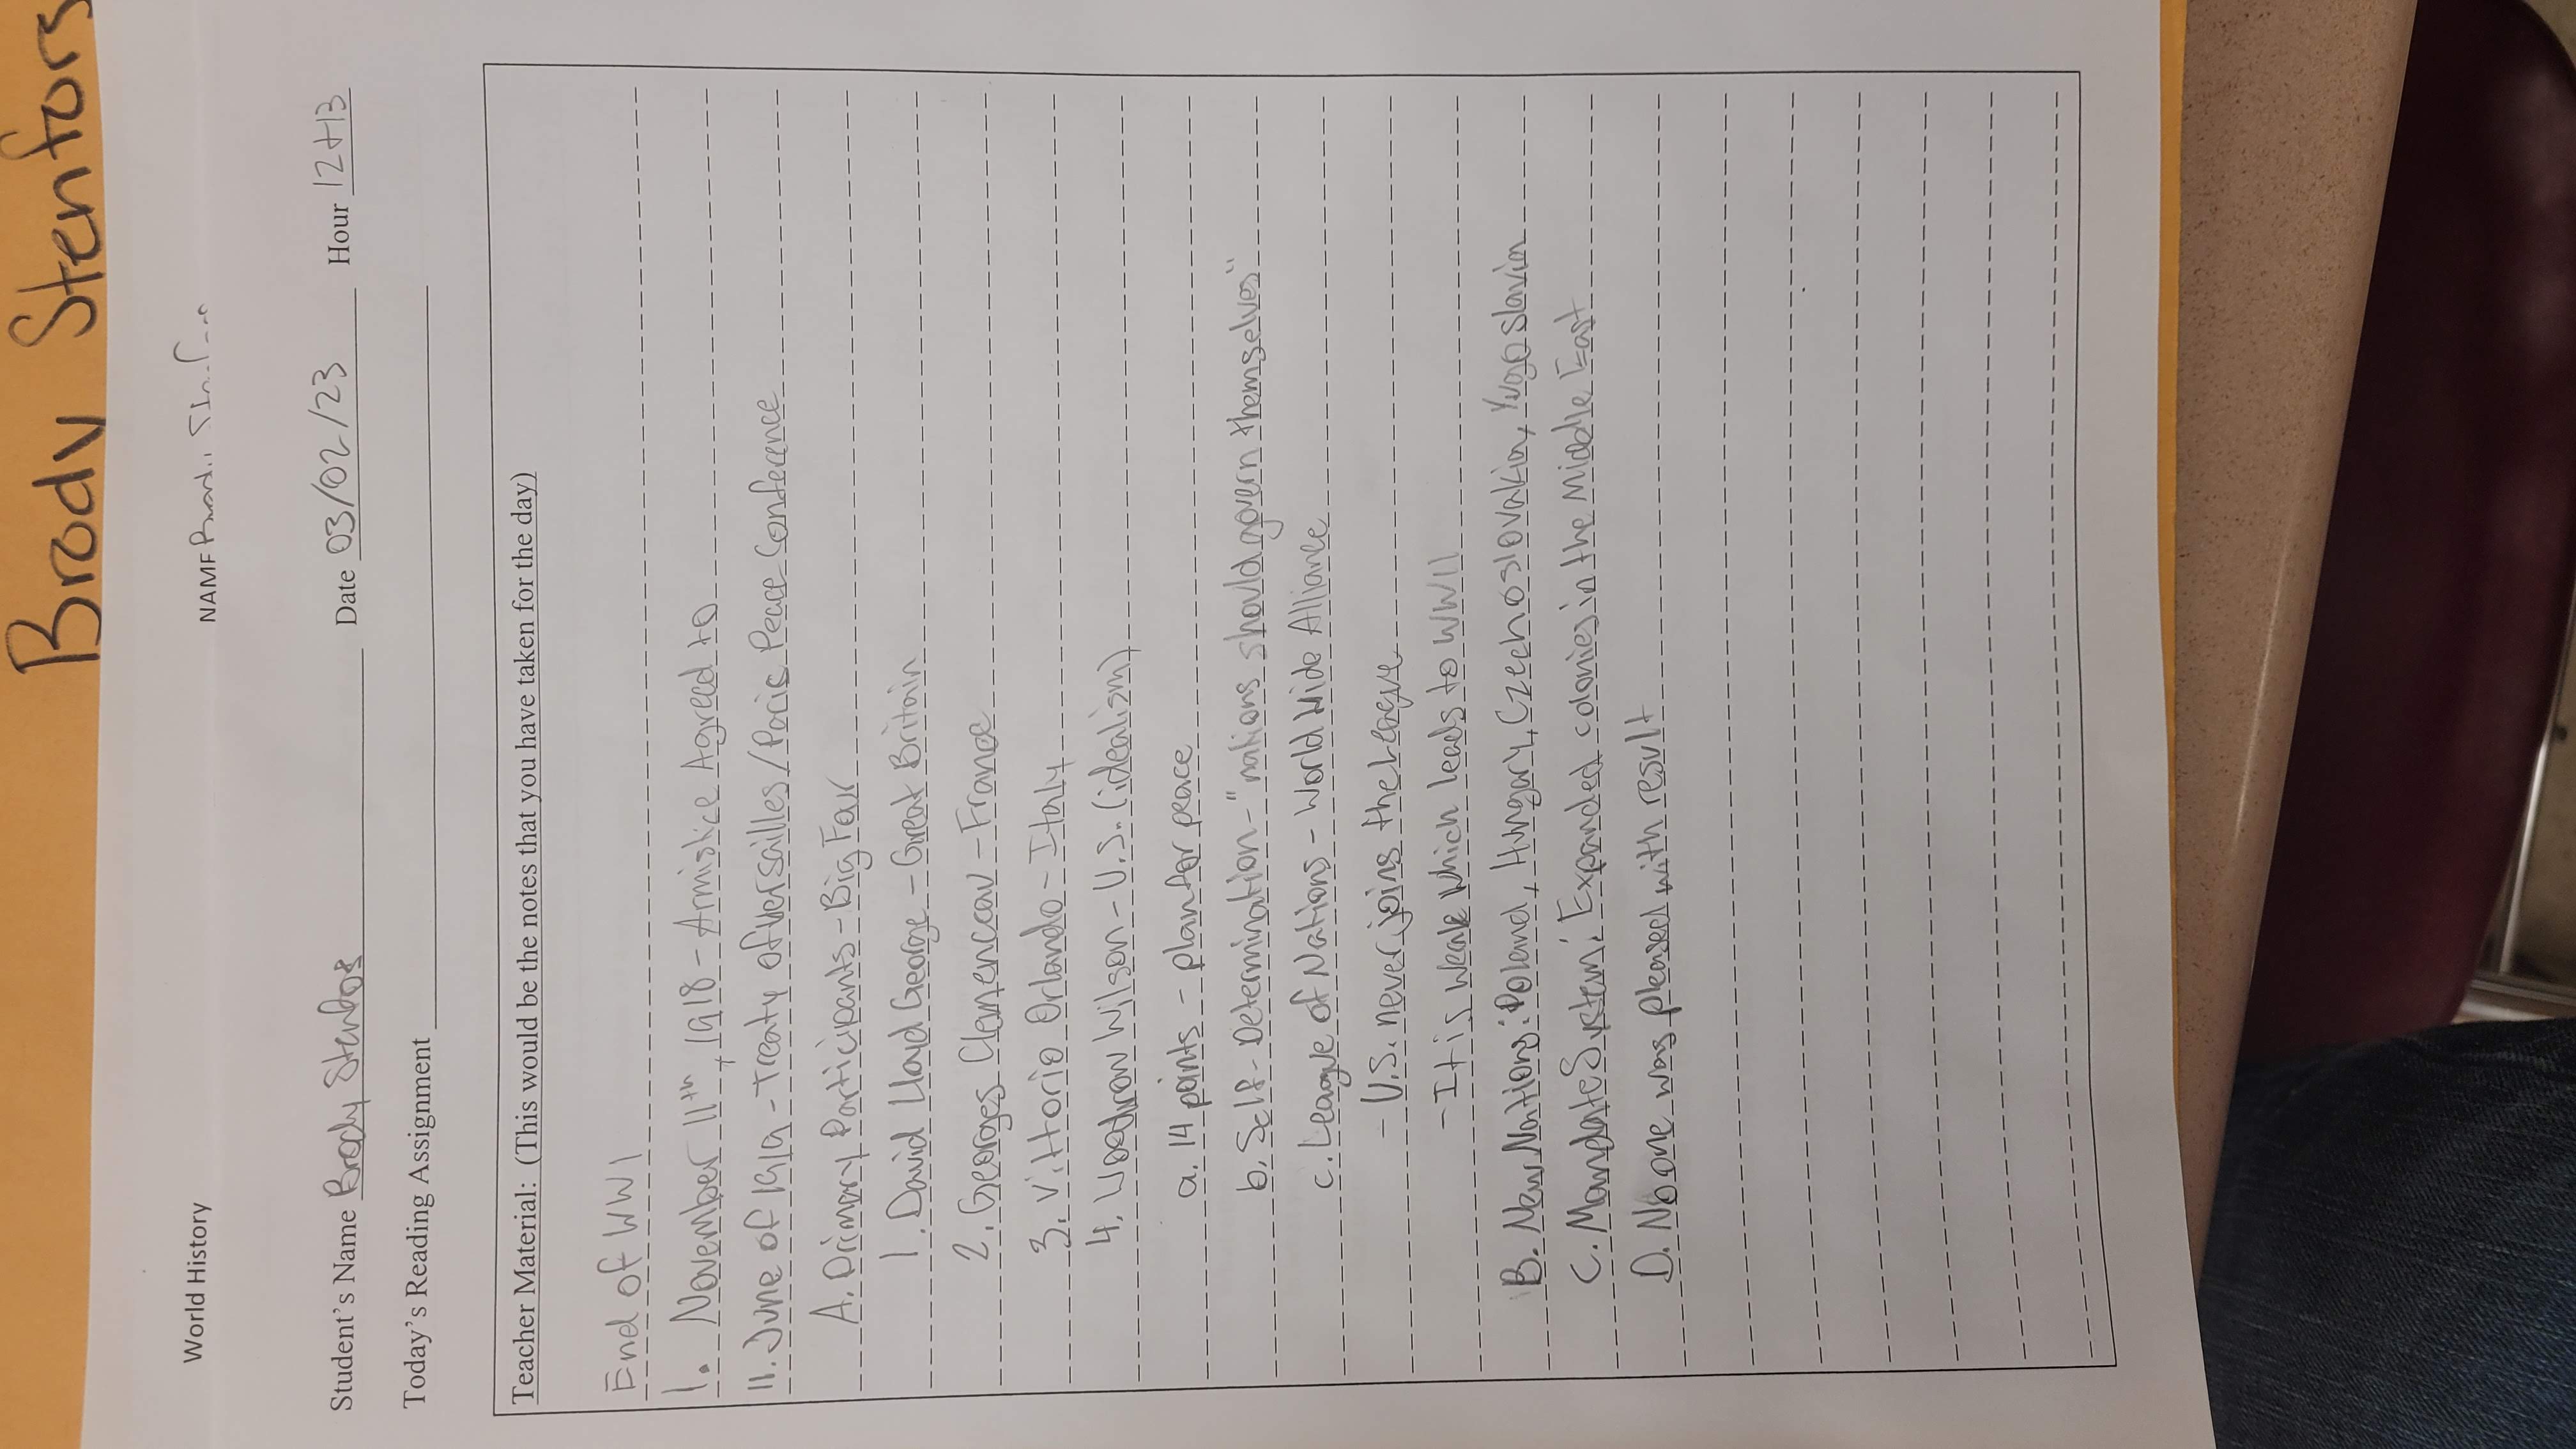 Brody Stenfors
World History NAME Brody
Student's Name Brody Stenfors Date 03/02/23 Hour 12+13
Today's Reading Assignment
Teacher Material: (This would be the notes that you have taken for the day)
End of WW1
I. November 11th, 1918 - Armistice Agreed to
II. June of 1919 - Treaty of Versailles/Paris Peace Conference
A. Primary Participants - Big Four
1. David Lloyd George - Great Britain
2. Georges Clemenceau - France
3. Vittorio Orlando - Italy
4. Woodrow Wilson - U.S. (idealism)
a. 14 points - plan for peace
b. Self-Determination - "nations should govern themselves"
c. League of Nations - World Wide Alliance
- U.S. never joins the League
- It is weak which leads to WWII
B. New Nations: Poland, Hungary, Czechoslovakia, Yugoslavia
C. Mandate System: Expanded colonies in the Middle East
D. No one was pleased with result